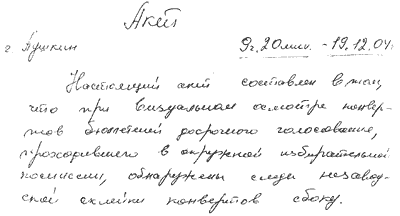 Акт
г Пушкин 9ч.20мин. - 19.12.04г
Настоящий акт составлен в том,
что при визуальном осмотре конвер-
тов бюллетеней досрочного голосования,
проходившего в окружной избирательной
комиссии, обнаружены следы незавод-
ской склейки конвертов сбоку.